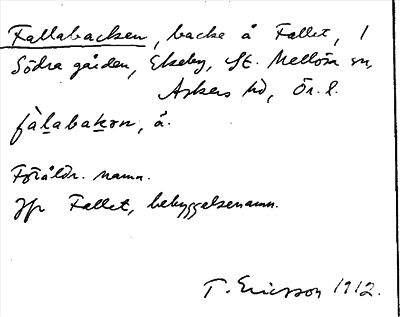 Fallabacken, backe å Fallet, 1
Södra gården, Ekeby, St. Mellösa sn,
Askers hd, Ör. l.
fàlabakɷn, å.
Föråldr. namn.
Jfr Fallet, bebyggelsenamn.
T. Ericsson 1912.